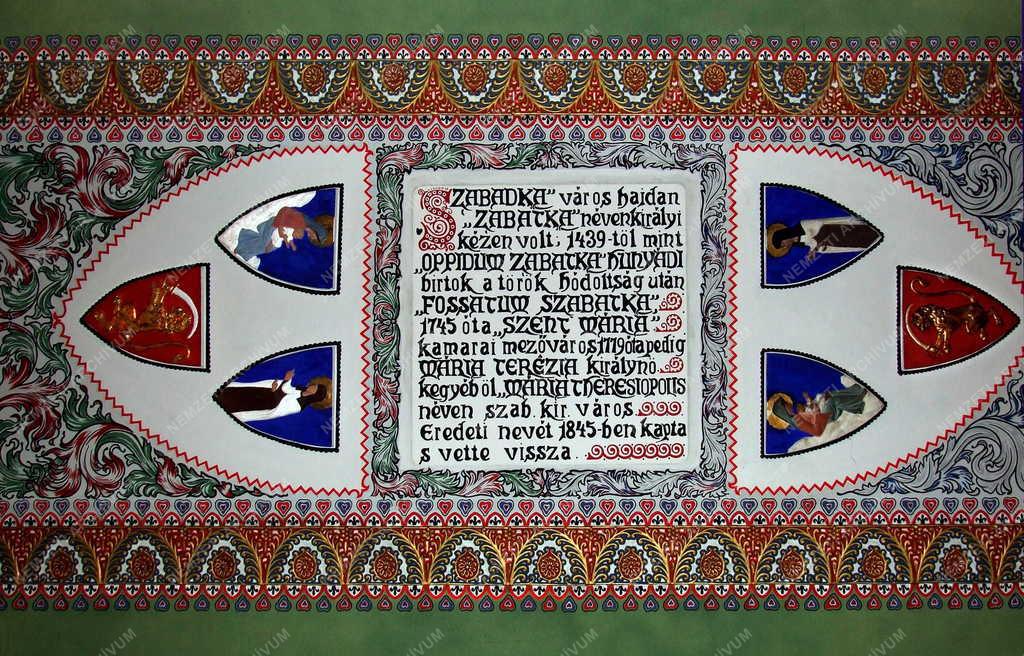 SZABADKA" város hajdan
„ZABATKA" néven királyi
kézen volt, 1439-től mint
„OPPIDUM ZABATKA" HUNYADI
birtok a török hódoltság után
„FOSSATUM SZABATKA",
1745 óta „SZENT MÁRIA"
kamarai mezőváros, 1779 óta pedig
MÁRIA TERÉZIA királynő
kegyéből „MARIA THERESIOPOLIS
néven szab. kir. város.
Eredeti nevét 1845-ben kapta
s vette vissza.
NEMZETI ARCHÍVUM